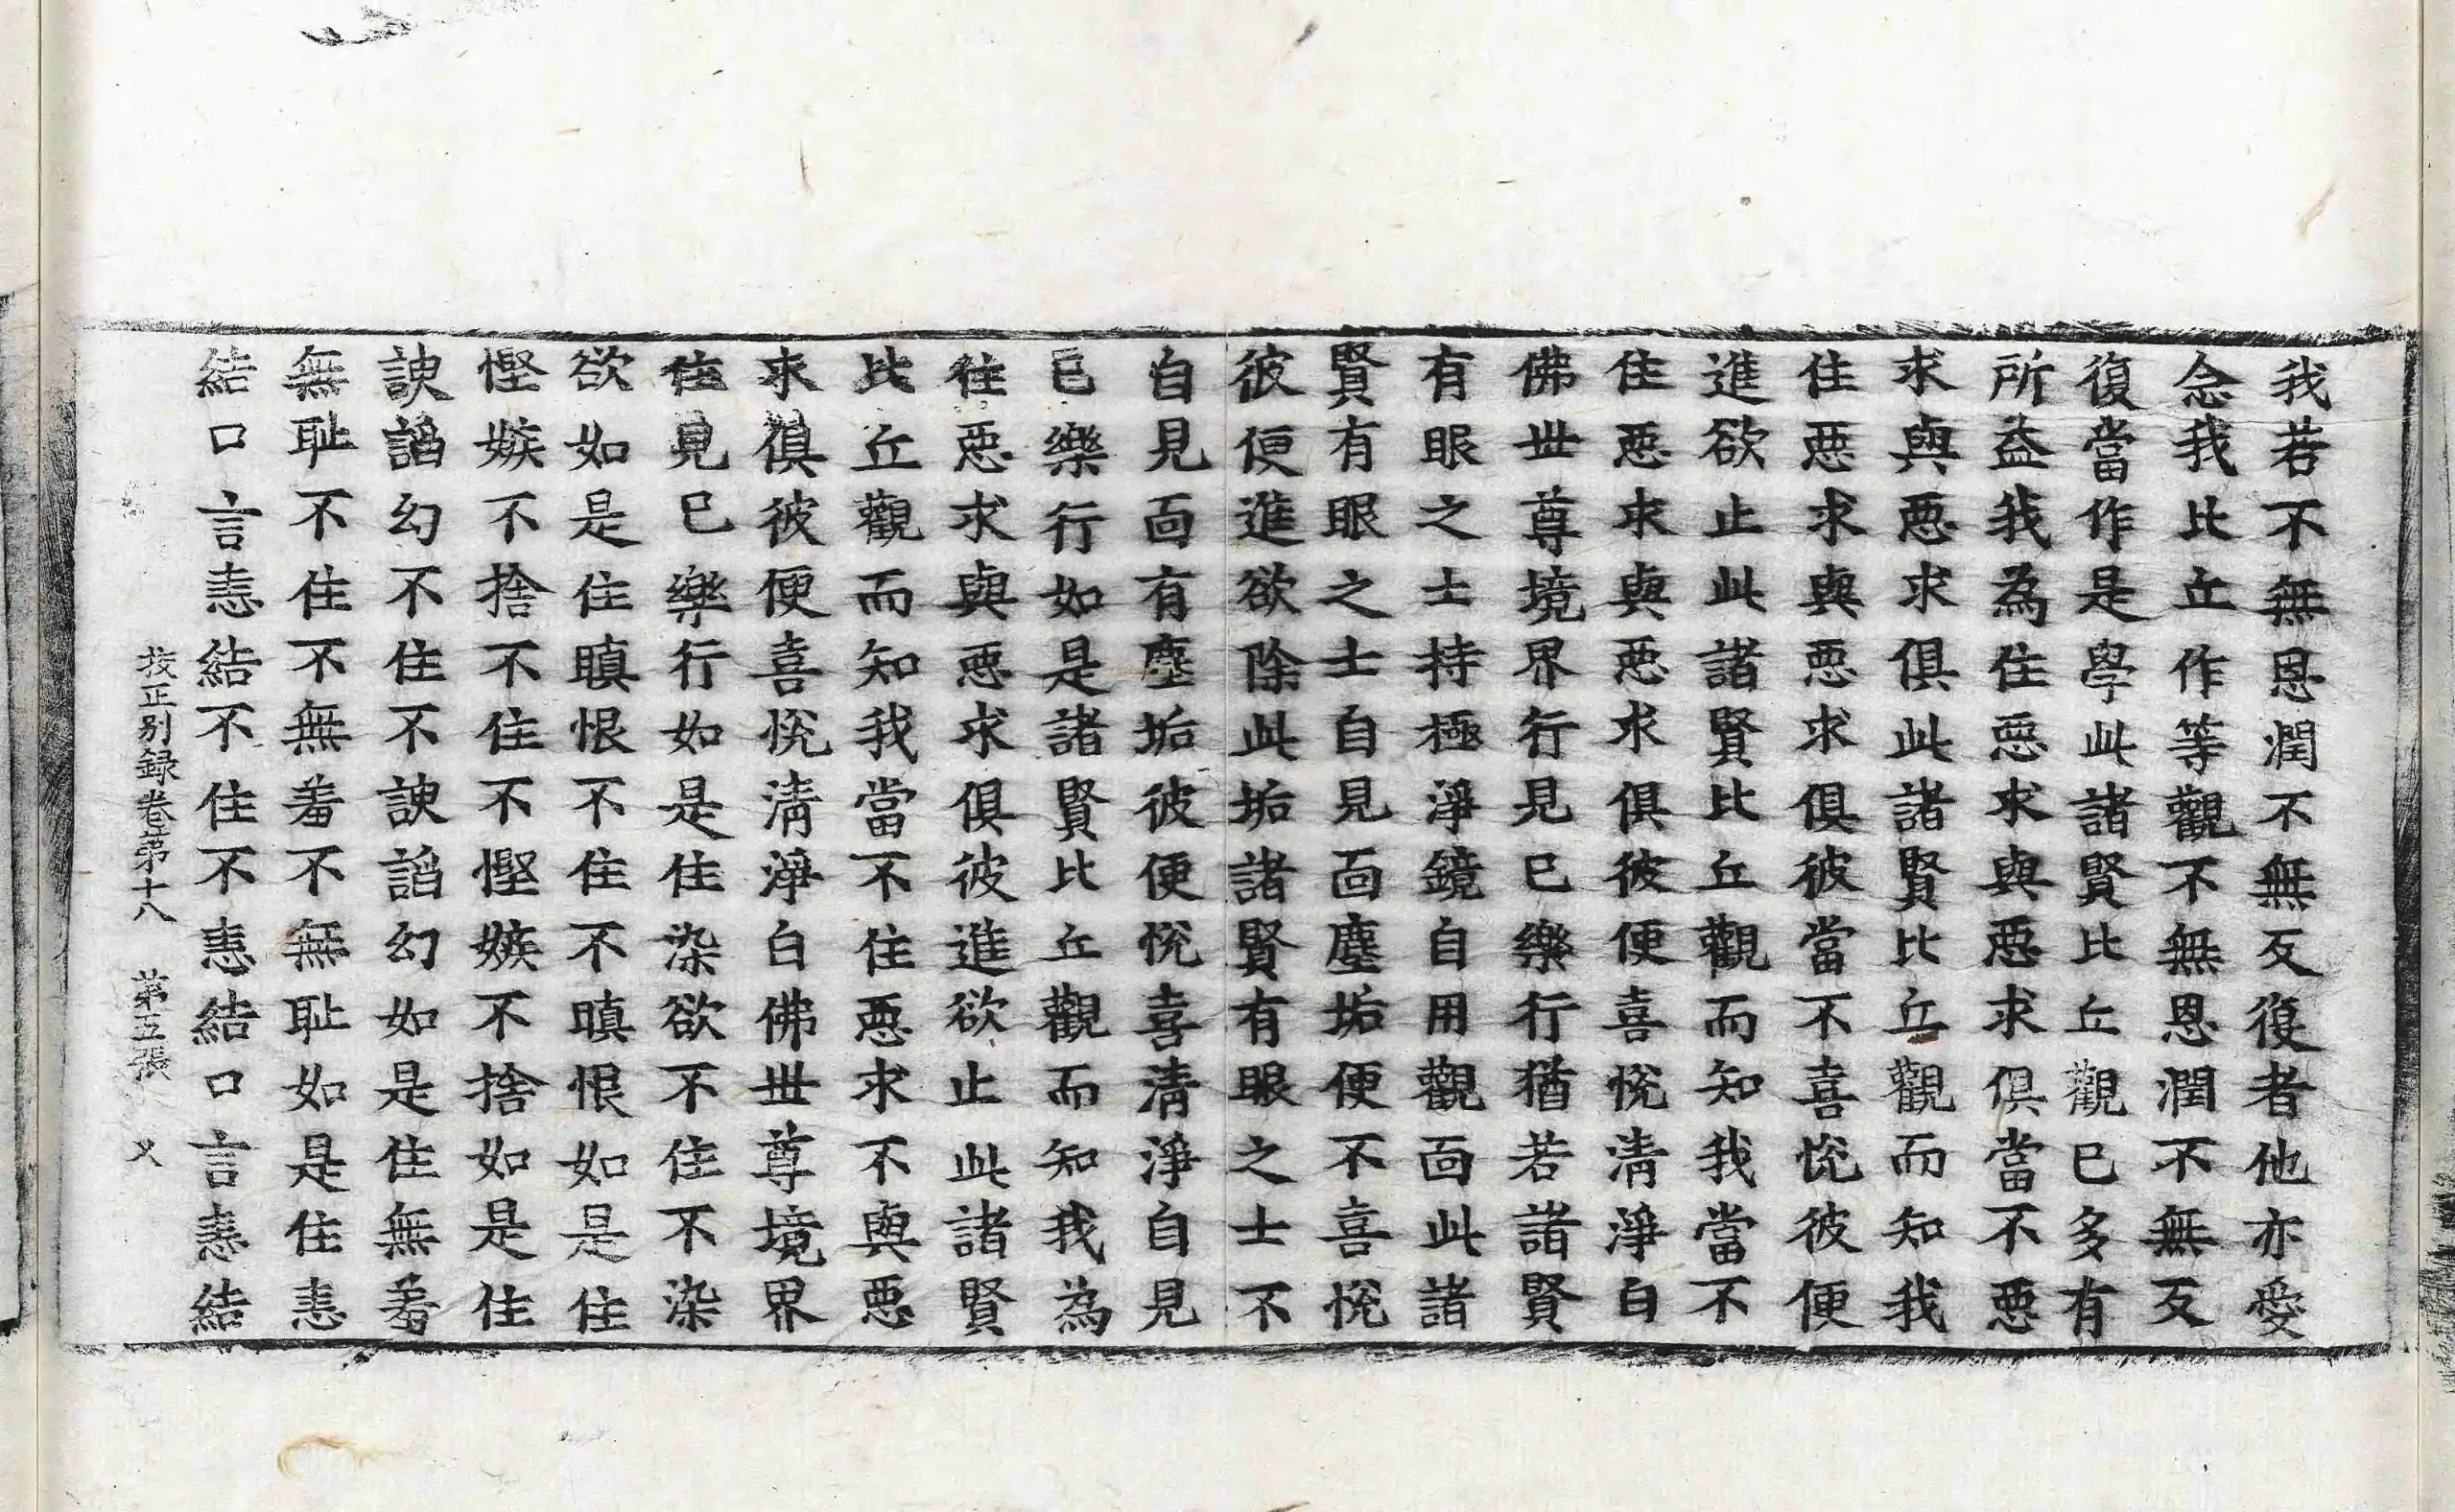 我若不無恩潤不無反復者他亦愛
念我比丘作等觀不無恩潤不無反
復當作是學此諸賢比丘觀已多有
所益我為住惡求與惡求俱當不惡
求與惡求俱此諸賢比丘觀而知我
住惡求與惡求俱彼當不喜悅彼便
進欲止此諸賢比丘觀而知我當不
住惡求與惡求俱彼便喜悅清淨白
佛世尊境界行見已樂行猶若諸賢
有眼之士持極淨鏡自用觀面此諸
賢有眼之士自見面塵垢便不喜悅
彼便進欲除此垢諸賢有眼之士不
自見面有塵垢彼便悅喜清淨自見
已樂行如是諸賢比丘觀而知我為
住惡求與惡求俱彼進欲止此諸賢
比丘觀而知我當不住惡求不與惡
求俱彼便喜悅清淨白佛世尊境界
住見已樂行如是住染欲不住不染
欲如是住瞋恨不住不瞋恨如是住
慳嫉不捨不住不慳嫉不捨如是住
諛諂幻不住不諛諂幻如是住無羞
無耻不住不無羞不無耻如是住恚
結口言恚結不住不恚結口言恚結
挍正别録卷第十八 第五張 㕛